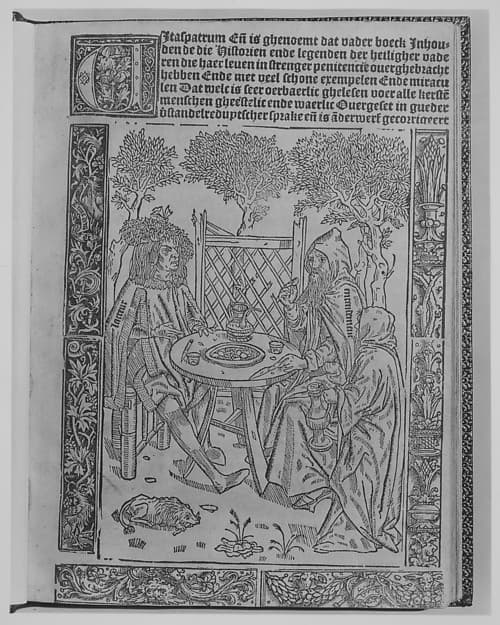 VItaspatrum Eñ is ghenoemt dat vader boeck Inhou-
den de die Historien ende legenden der heiligher vade
ren die haer leuen in strenger penitencie ouerghebracht
hebben Ende met veel schone exempelen Ende miracu
len Dat welc is seer oerbaerlic ghelesen voer alle kerstē
menschen gheestelic ende waerlic Ouergeset in gueder
v̄standelre duytscher sprake eñ is āderwerf gecorrigeert